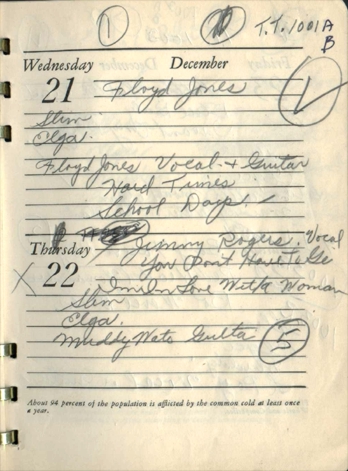 1
T.T. 1001 A
B
Wednesday December
21 Floyd Jones
Slim
Elga.
Floyd Jones Vocal + Guitar
Hard Times
School Days.
Thursday
22
Jimmy Rogers. Vocal
You Dont Have To Go
Im In Love With a Woman
Slim
Elga.
Muddy Wats Guita
About 94 percent of the population is afflicted by the common cold at least once
a year.